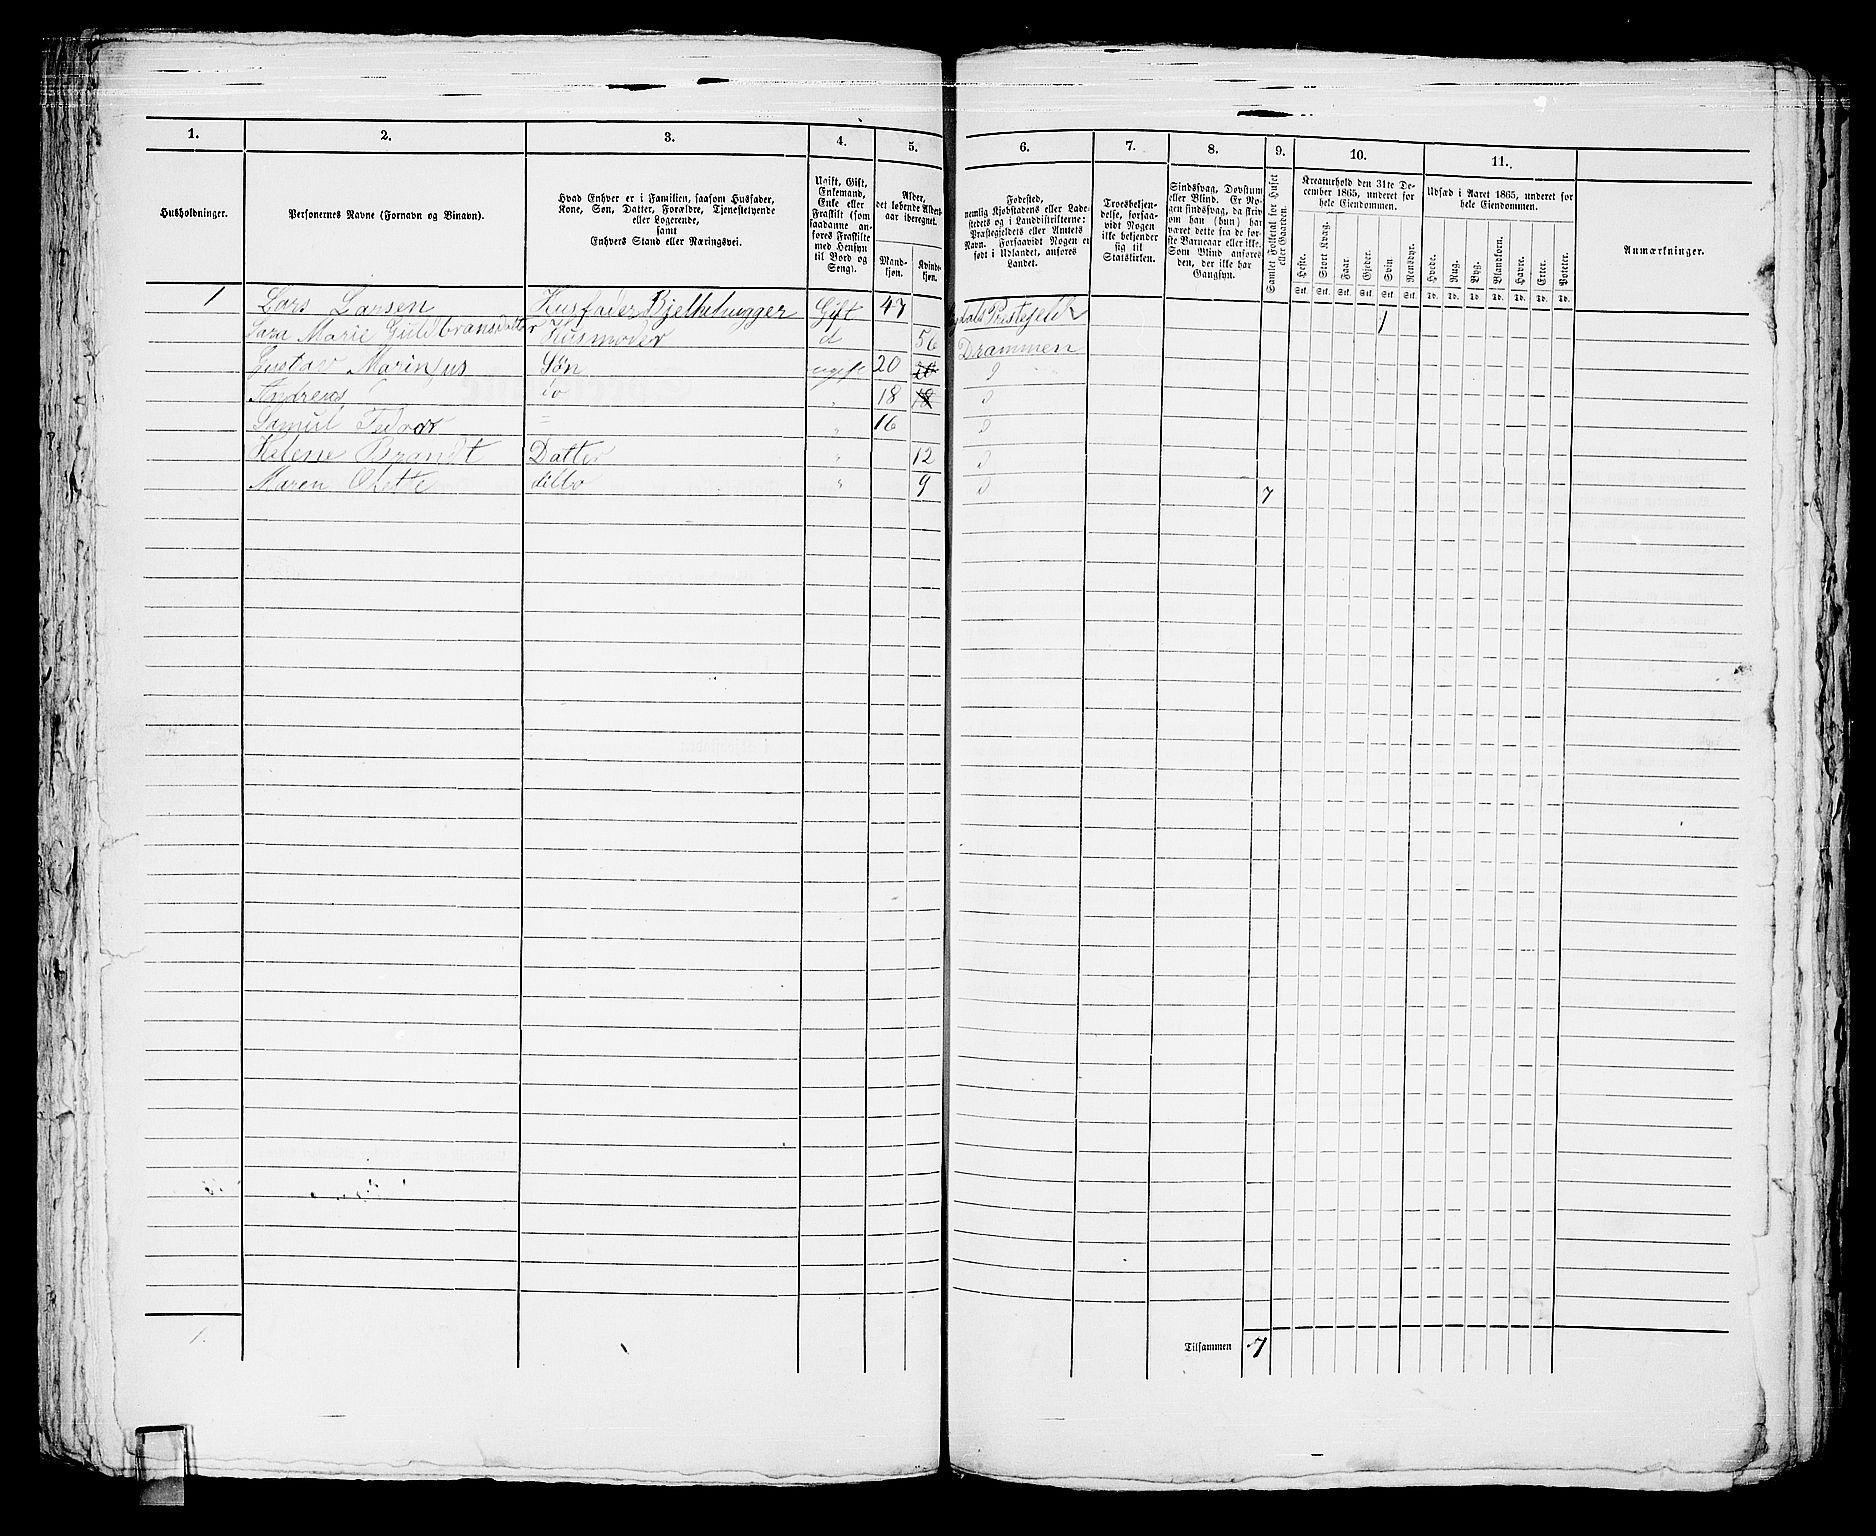 1. 2. 3. 4. 5. 6. 7. 8. 9. 10. 11.
Husholdninger.
Personernes Navne (Fornavn og Binavn).
Hvad Enhver er i Familien, saasom Husfader,
Kone, Søn, Datter, Forældre, Tjenestetyende
eller Logerende,
samt
Enhvers Stand eller Næringsvei.
Ugift, Gift,
Enkemand,
Enke eller
Fraskilt (som
saadanne an-
føres Fraskilte
med Hensyn
til Bord og
Seng).
Alder,
det løbende Alders-
aar iberegnet.
Mand-
kjøn.
Kvind-
kjøn.
Fødested,
nemlig Kjøbstadens eller Lade-
stedets og i Landdistrikterne:
Præstegjeldets eller Amtets
Navn. Forsaavidt Nogen er
født i Udlandet, anføres
Landet.
Troesbekjen-
delse, forsaa-
vidt Nogen
ikke bekjender
sig til
Statskirken.
Sindssvag, Døvstum
eller Blind. Er No-
gen sindssvag, da skriv
om han (hun) har
været dette fra de før-
ste Barneaar eller ikke.
Som Blind anføres
den, der ikke har
Gangsyn.
Samlet Folketal for Huset
eller Gaarden.
Kreaturhold den 31te De-
cember 1865, underet for
hele Eiendommen.
Heste. Stort Kvæg. Faar. Gjeder. Svin. Rensdyr.
Stk. Stk. Stk. Stk. Stk. Stk.
Udsæd i Aaret 1865, underet for
hele Eiendommen.
Hvede. Rug. Byg. Blandkorn. Havre. Erter. Poteter.
Td. Td. Td. Td. Td. Td. Td.
Anmærkninger.
1 Lars Larsen Husfader Bjelkehugger Gift 47 Prestejeld 1
Sara Marie Guldbransdatter Husmoder d 56 Drammen
Gustav Marinius Søn ugift 20
Andreas do " 18 18
Samul Tedvor = " 16
Helene Brandt Datter " 12
Maren Olette ditto " 9 7
1.
Tilsammen 7